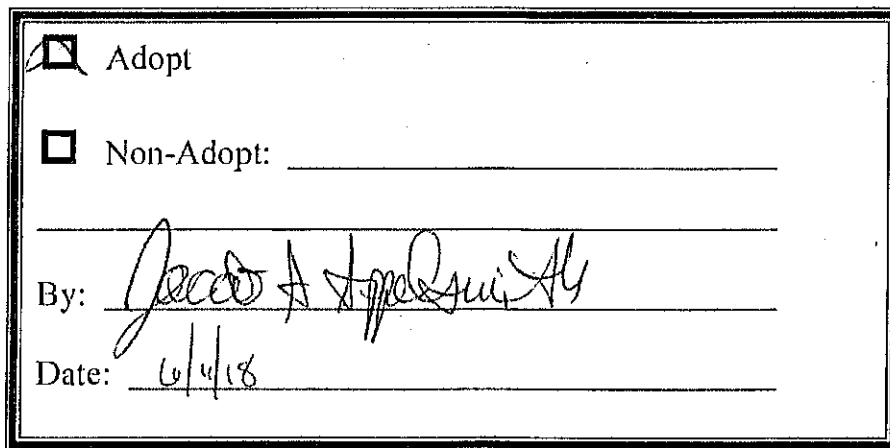 Adopt
Non-Adopt:
By: Jacob A Appelsmith
Date: 6/4/18